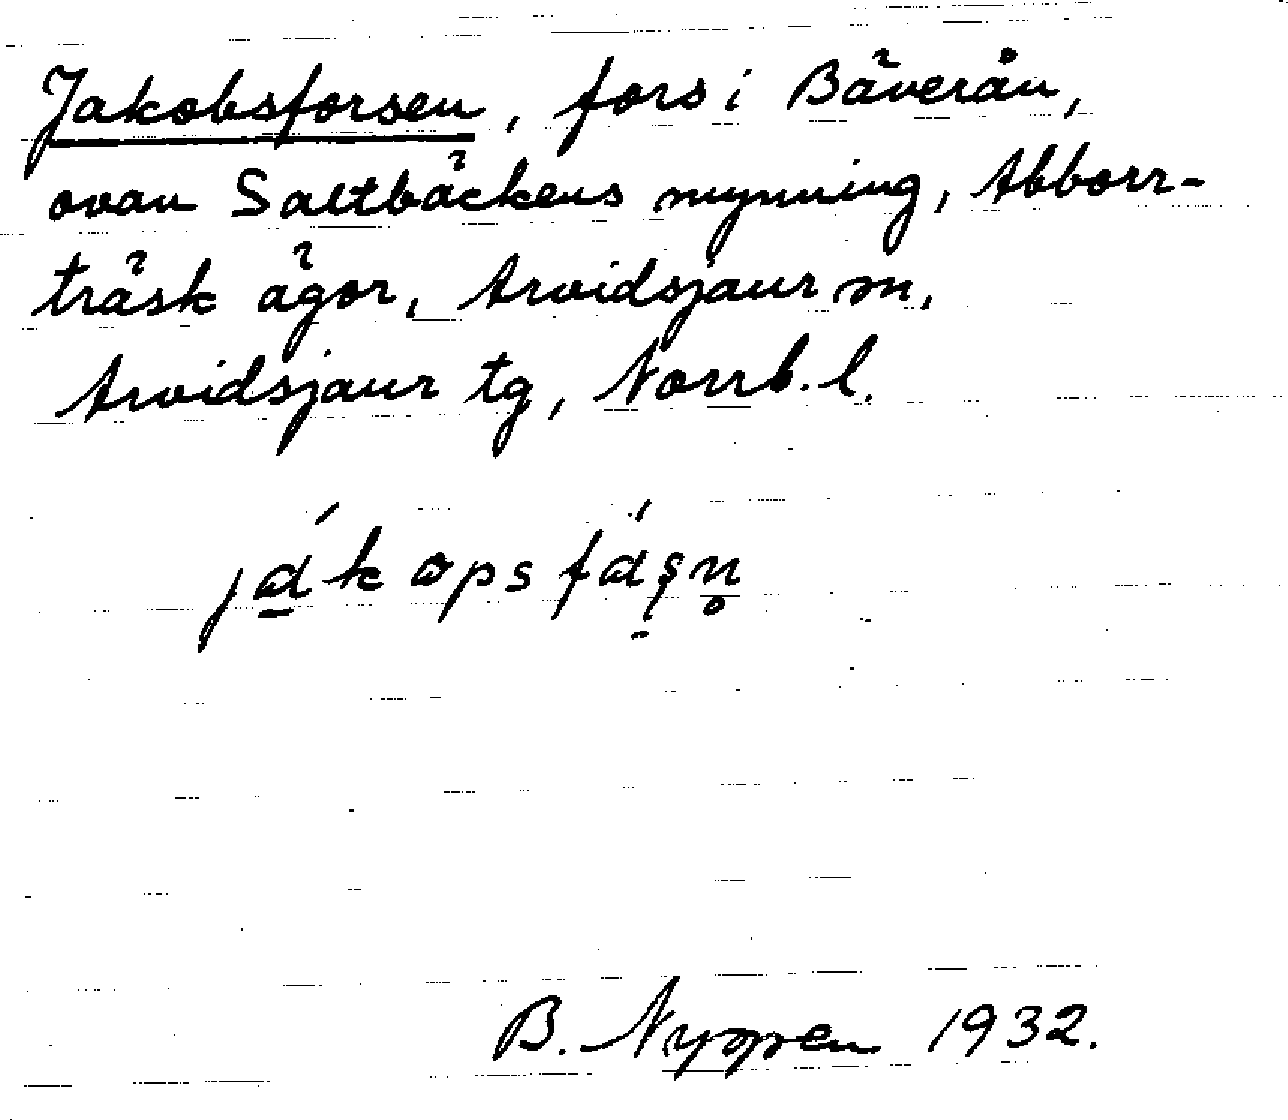 Jakobsforsen, fors i Bäverån,
ovan Saltbäckens mynning, Abborr-
träsk ägor, Arvidsjaur sn,
Arvidsjaur tg, Norrb. l.
já̱kopsfáşn̥
B. Nyppen 1932.